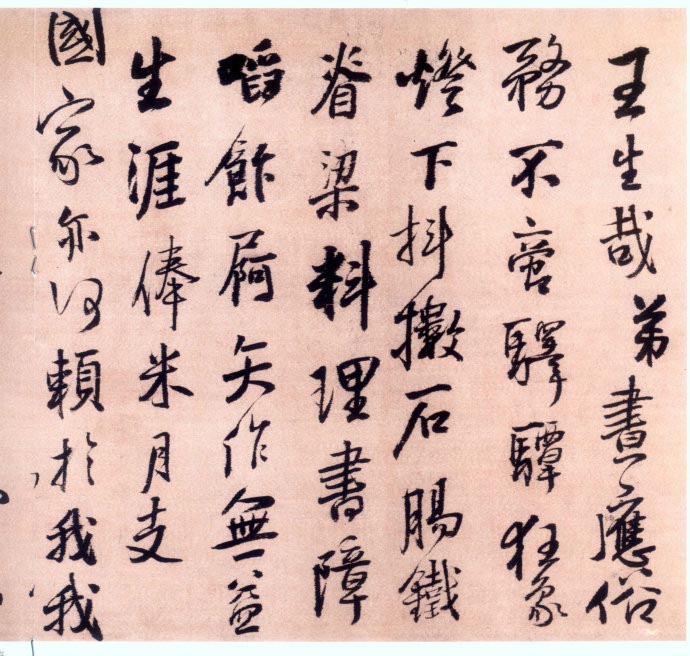 王生哉弟晝應俗
務不啻驛驔狂象
燈下抖擻石腸鐵
脊梁料理書障
啗飰屙矢作無益
生涯俸米月支
國家亦何賴於我我